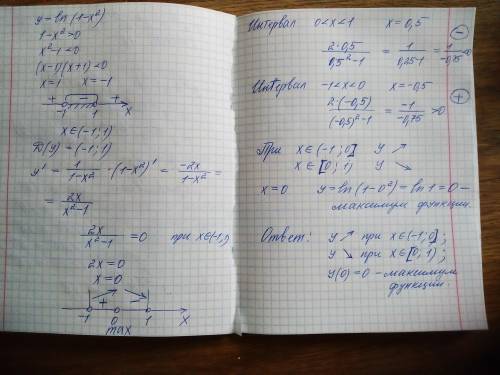 y = ln (1-x²)
1-x²>0
x²-1<0
(x-1)(x+1)<0
x=1 x=-1
+ - +
-1 1 x
x∈(-1; 1)
D(y) = (-1; 1)
y' = 1/(1-x²) · (1-x²)' = -2x/(1-x²) =
= 2x/(x²-1)
2x/(x²-1) = 0 при x∈(-1;1)
2x=0
x=0
+ -
-1 0 1 x
max
Интервал 0<x<1 x=0,5
2·0,5/(0,5²-1) = 1/(0,25-1) = 1/(-0,75) <0 -
Интервал -1<x<0 x=-0,5
2·(-0,5)/((-0,5)²-1) = -1/(-0,75) >0 +
При x∈(-1; 0] y ↗
x∈[0; 1) y ↘
x=0 y=ln(1-0²)=ln 1=0 -
максимум функции.
Ответ: y ↗ при x∈(-1; 0];
y ↘ при x∈[0; 1);
y(0)=0 - максимум
функции.